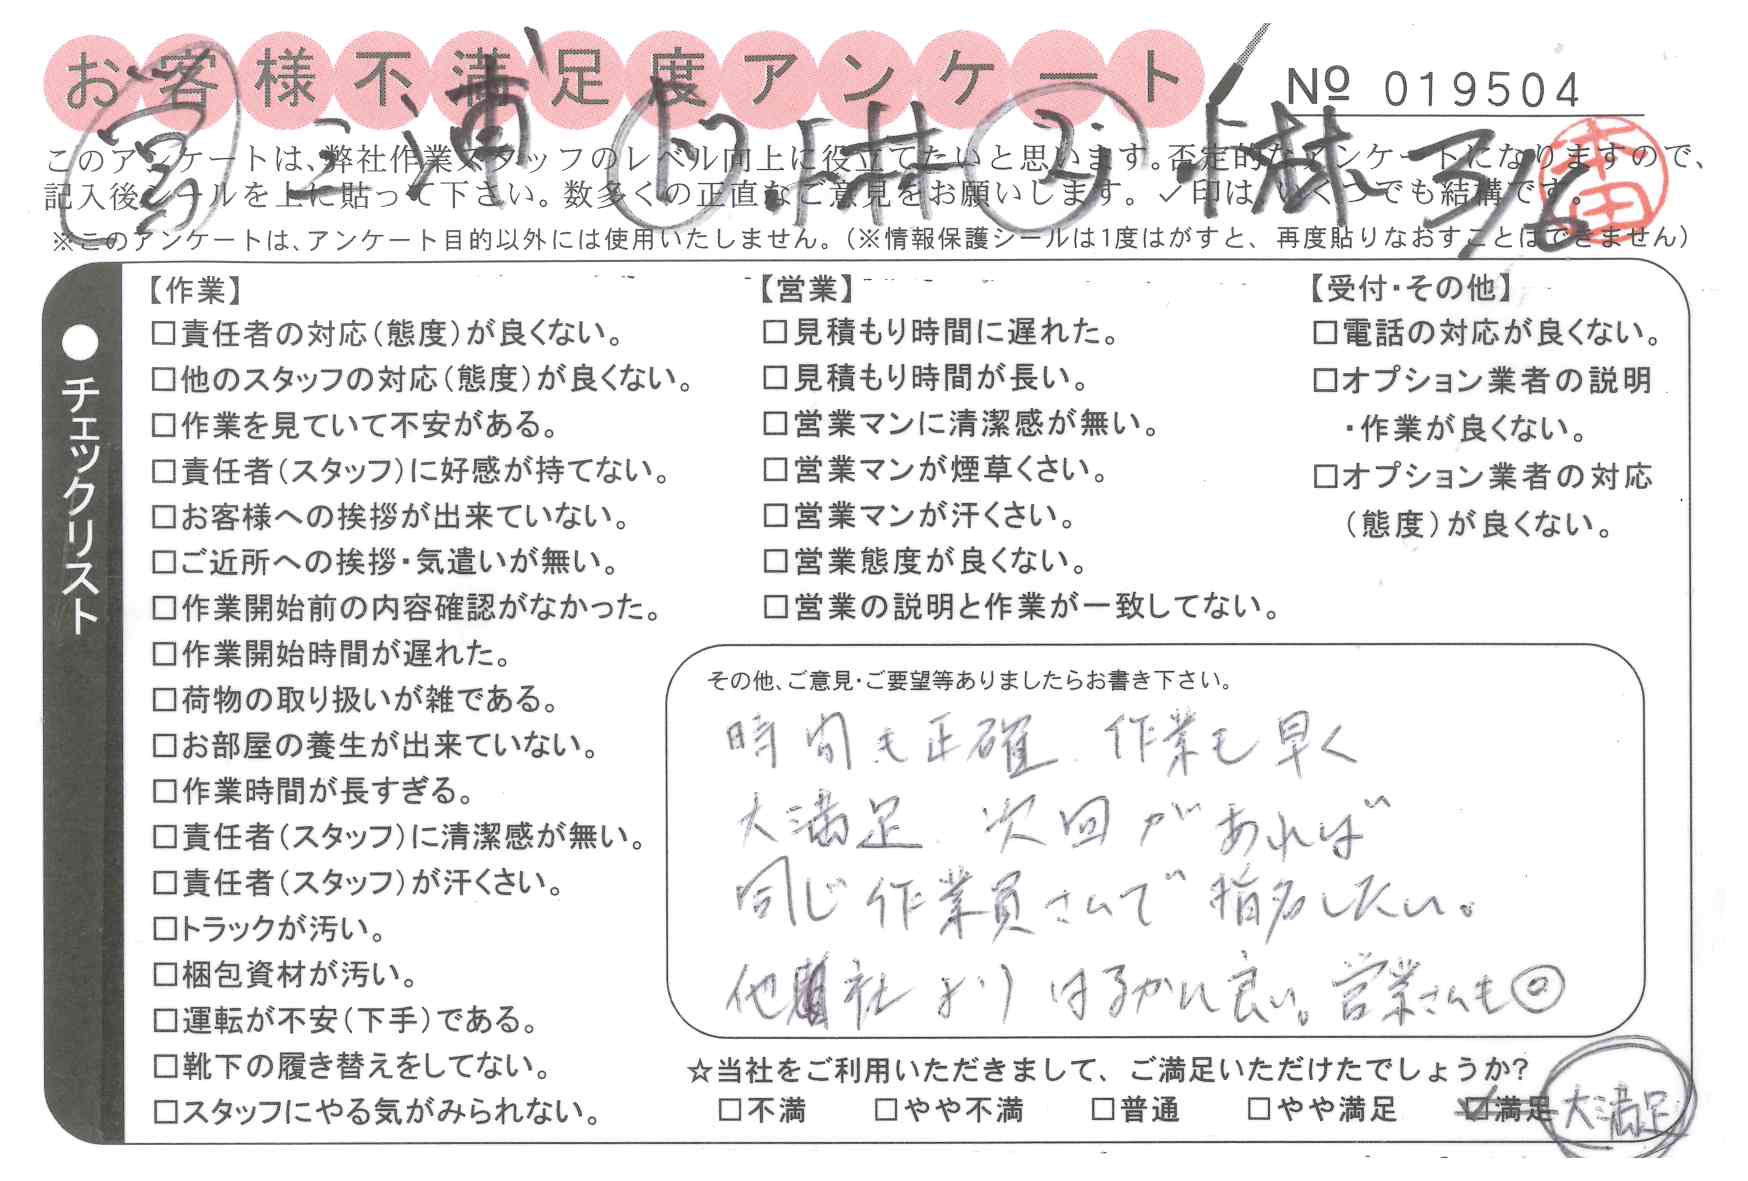 お客様不満足度アンケート
№ 019504
このアンケートは、弊社作業スタッフのレベル向上に役立てたいと思います。否定的なアンケートになりますので、
記入後シールを上に貼って下さい。数多くの正直なご意見をお願いします。✓印は、いくつでも結構です。
※このアンケートは、アンケート目的以外には使用いたしません。（※情報保護シールは1度はがすと、再度貼りなおすことはできません）
●チェックリスト
【作業】
□責任者の対応（態度）が良くない。
□他のスタッフの対応（態度）が良くない。
□作業を見ていて不安がある。
□責任者（スタッフ）に好感が持てない。
□お客様への挨拶が出来ていない。
□ご近所への挨拶・気遣いが無い。
□作業開始前の内容確認がなかった。
□作業開始時間が遅れた。
□荷物の取り扱いが雑である。
□お部屋の養生が出来ていない。
□作業時間が長すぎる。
□責任者（スタッフ）に清潔感が無い。
□責任者（スタッフ）が汗くさい。
□トラックが汚い。
□梱包資材が汚い。
□運転が不安（下手）である。
□靴下の履き替えをしてない。
□スタッフにやる気がみられない。
【営業】
□見積もり時間に遅れた。
□見積もり時間が長い。
□営業マンに清潔感が無い。
□営業マンが煙草くさい。
□営業マンが汗くさい。
□営業態度が良くない。
□営業の説明と作業が一致してない。
【受付・その他】
□電話の対応が良くない。
□オプション業者の説明
・作業が良くない。
□オプション業者の対応
（態度）が良くない。
その他、ご意見・ご要望等ありましたらお書き下さい。
時間も正確、作業も早く
大満足、次回があれば
同じ作業員さんで指名したい。
他社よりはるかに良い。営業さんも◎
☆当社をご利用いただきまして、ご満足いただけたでしょうか?
□不満 □やや不満 □普通 □やや満足 ☑満足 大満足